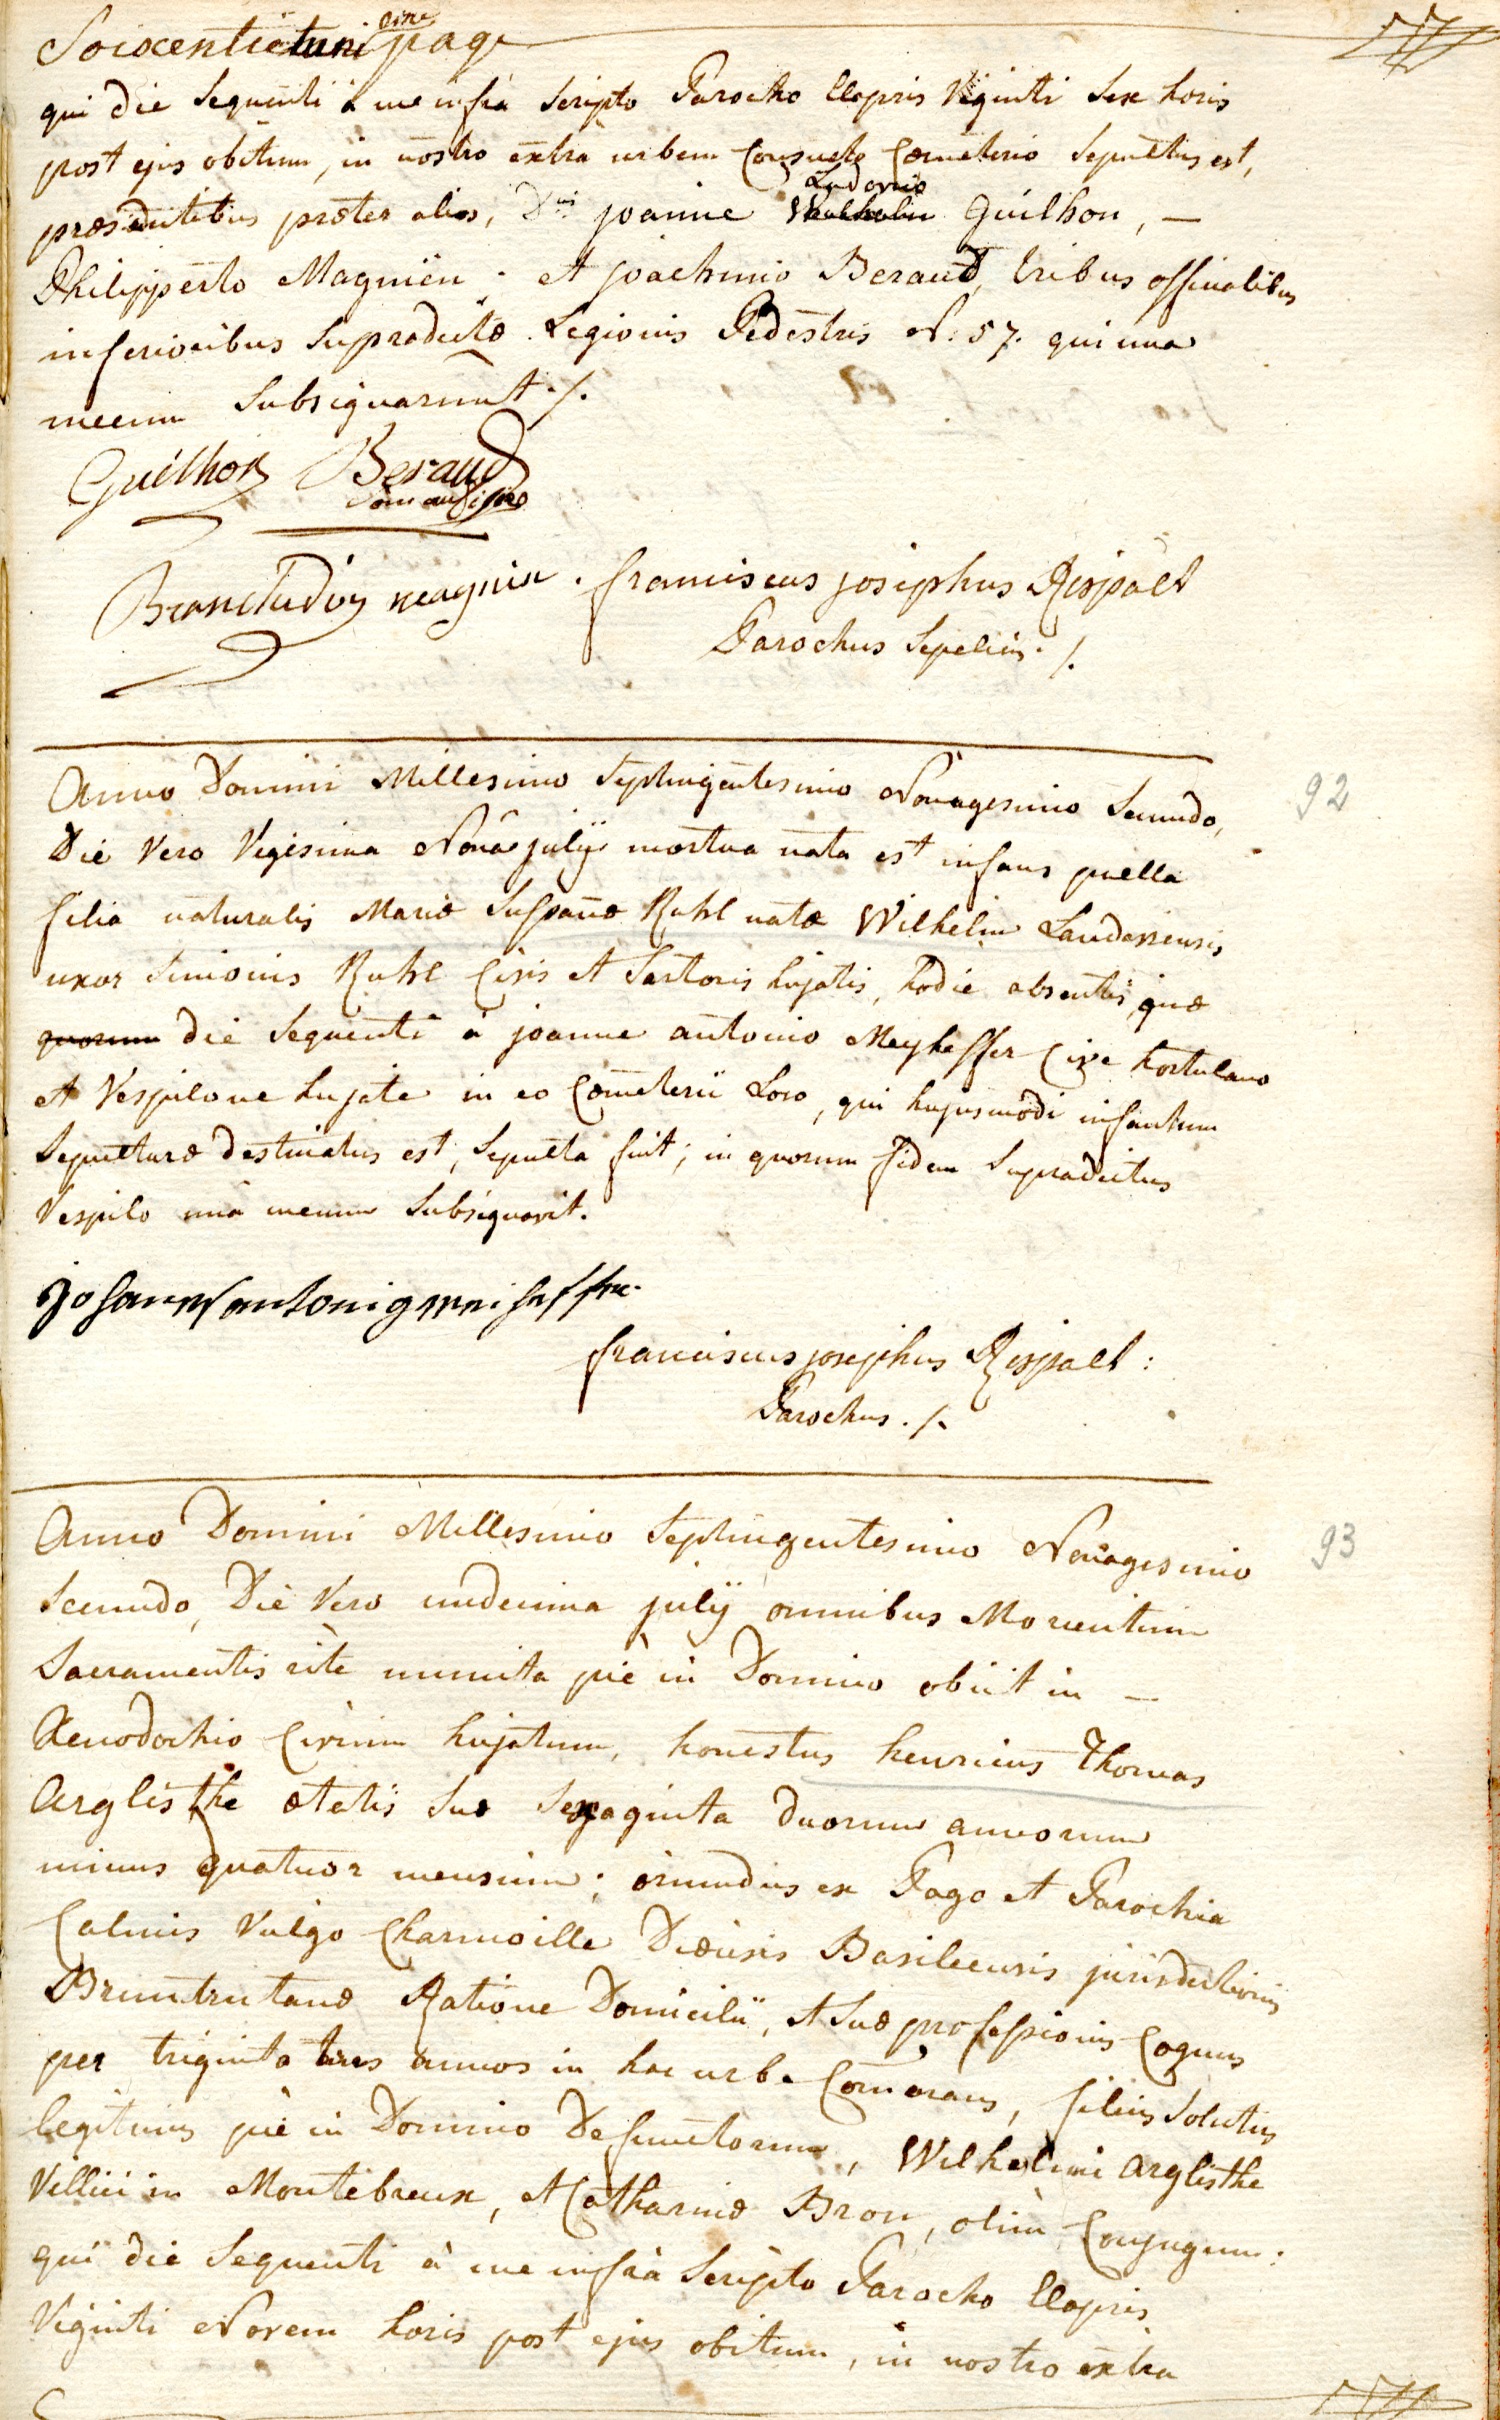 Soixentieieme page
qui die Sequenti à me infrà Scripto Parocho Elapsis Viginti Sex horis
post ejus obitum, in nostro extrà urbem Consueto Cœmeterio Sepultus est,
præsentibus præter alios, Dnis joanne Ludovico Guilhon, —
Philipperto Magnien · et joachimo Beraud, tribus officialibus
inferioribus Supradictæ Legionis Pedestris N: 57. qui una
mecum Subsignarunt ./.
Guilhon Beraud
magnien . franciscus josephus Rispalt
Parochus Sepeliens ./.
Anno Domini Millesimo Septingentesimo Nonagesimo Secundo, 92
Die Vero Vigesima Nona julÿ mortua nata est infans puella
filia naturalis Mariæ Susannæ Ruhl natæ Wilhelm Landaviensis
uxor Simonis Ruhl Civis et Sartoris hujatis, hodie absentis, quæ
quorum die Sequenti à joanne antonio Meyheffer Cive hortulano
et Vespilone hujate in eo Cœmeterii Loco, qui hujusmodi infantum
Sepulturæ destinatus est, Sepulta fuit; in quorum fidem Supradictus
Vespilo unà mecum Subsignavit.
johannes antonig meiheffer
franciscus josephus Rispalt :
Parochus ./.
Anno Domini Millesimo Septingentesimo Nonagesimo 93
Secundo, Die Vero undecima julÿ omnibus Morientium
Sacramentis ritè munita piè in Domino obiit in —
Xenodochio Civium hujatum, honestus henricus Thomas
Arglisthe ætatis Suæ Sexaginta duorum annorum
minus quatuor mensium; oriundus ex Pago et Parochia
Calmis Vulgo Charmoille Diœcisis Basileensis jurisdictionis
Bruntrutanæ Ratione Domicilii, et Suæ professionis Coquus
per triginta tres annos in hac urbe Comorans, filius Solutus
legitimus piè in Domino Defunctorum, Wilhelmi Arglisthe
Villici in Montebreux, et Catharinæ Bron, olim Conjugum:
qui die Sequenti à me infrà Scripto Parocho Elapsis
Viginti Novem horis post ejus obitum, in nostro extra